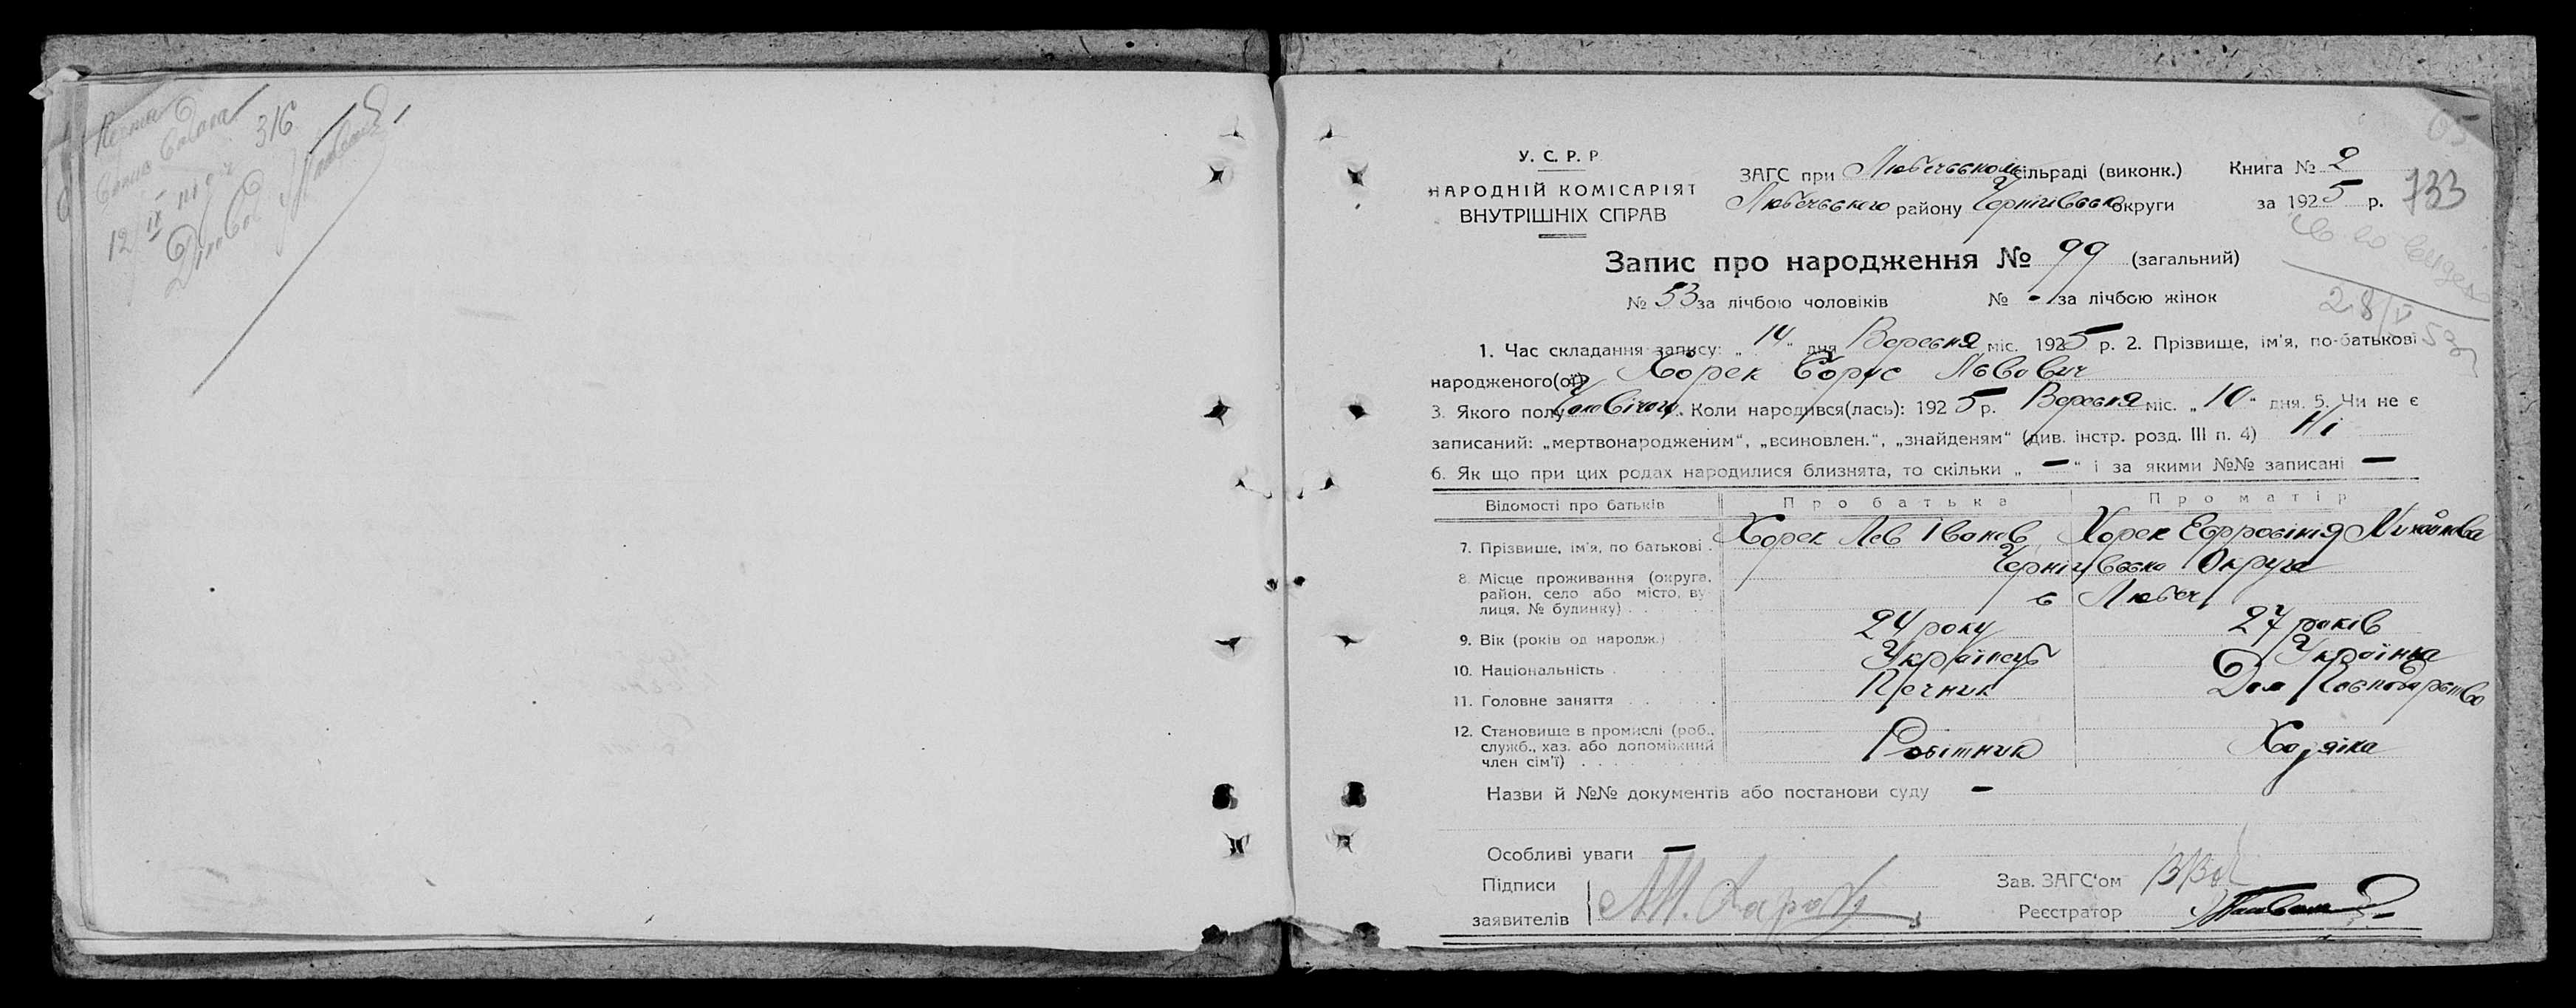 316
12/IV
У. С. Р. Р.
НАРОДНІЙ КОМІСАРІЯТ
ВНУТРІШНІХ СПРАВ
ЗАГС при Любечському сільраді (виконк.)
Любечського району Чернігівсько округи
Книга № 2
за 1925 р.
133
Запис про народження № 99 (загальний)
№ 53 за лічбою чоловіків № - за лічбою жінок
28/V
1. Час складання запису: „14" дня Вересня міс. 1925 р. 2. Прізвище, ім'я, по-батькові
народженого(ої) Хорек Борус Львович
3. Якого полу Чоловічого. Коли народився(лась): 1925 р. Вересня міс. „10" дня. 5. Чи не є
записаний: „мертвонародженим", „всиновлен.", „знайденям" (див. інстр. розд. III п. 4) Ні
6. Як що при цих родах народилися близнята, то скільки „ — " і за якими №№ записані —
Відомості про батьків Про батька Про матір
7. Прізвище, ім'я, по батькові . Хорек Лев Іванов Хорек Ефросінія Михайлова
8. Місце проживання (округа, Чернігівська Округа
район, село або місто, ву-
лиця, № будинку) . . . . с Любеч
9. Вік (років од народж.) 24 року 27 років
10. Національність . Українець Українка
11. Головне заняття . . . . Печник Дом Господарство
12. Становище в промислі (роб.,
служб., хаз. або допоміжний Робітник Хазяйка
член сім'ї) . . . . . .
Назви й №№ документів або постанови суду —
Особливі уваги —
Підписи
заявителів
Зав. ЗАГС'ом
Реєстратор